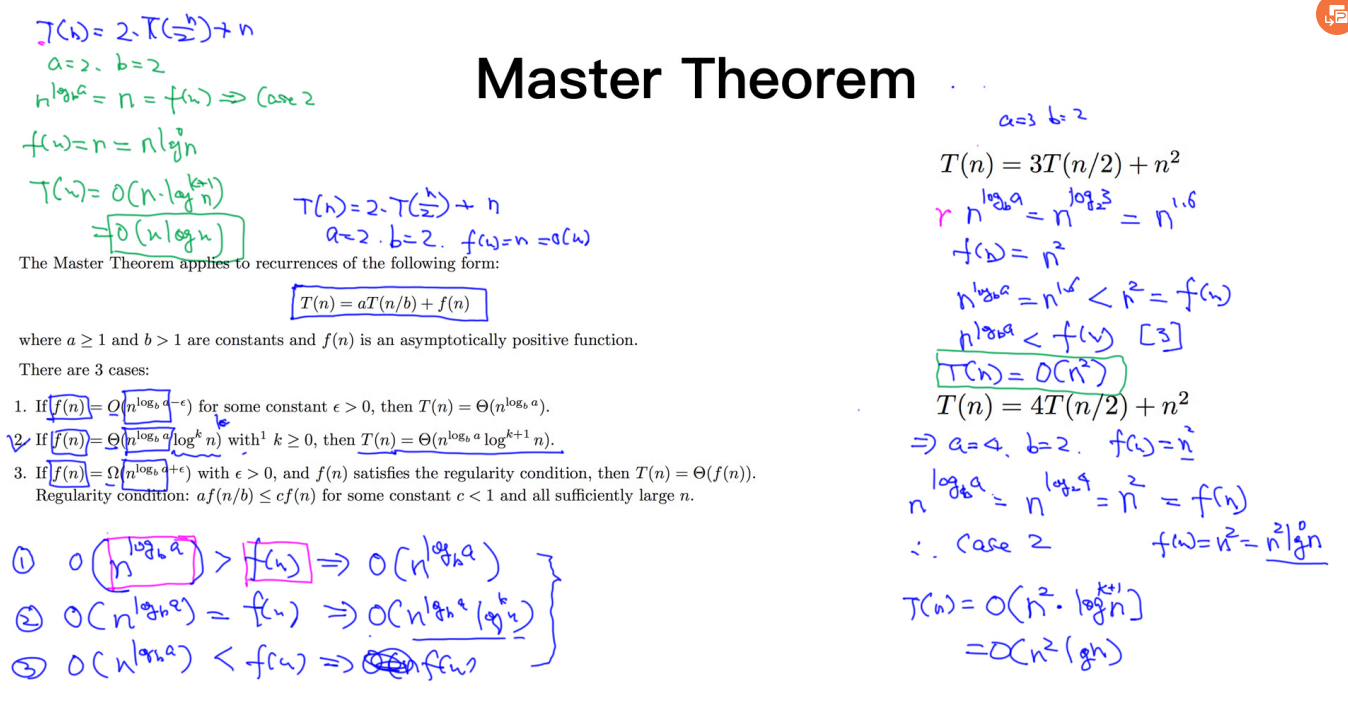 Master Theorem
T(n) = 2·T(n/2) + n
a=2. b=2
n^log_b a = n = f(n) ⇒ Case 2
f(n) = n = n lg^0 n
T(n) = O(n·log^(k+1) n)
= O(n log n)
T(n) = 2·T(n/2) + n
a=2. b=2. f(n)=n =O(n)
The Master Theorem applies to recurrences of the following form:
T(n) = aT(n/b) + f(n)
where a ≥ 1 and b > 1 are constants and f(n) is an asymptotically positive function.
There are 3 cases:
1. If f(n) = O(n^(log_b a−ϵ)) for some constant ϵ > 0, then T(n) = Θ(n^(log_b a)).
k
2. If f(n) = Θ(n^(log_b a) log^k n) with¹ k ≥ 0, then T(n) = Θ(n^(log_b a) log^(k+1) n).
3. If f(n) = Ω(n^(log_b a+ϵ)) with ϵ > 0, and f(n) satisfies the regularity condition, then T(n) = Θ(f(n)).
Regularity condition: af(n/b) ≤ cf(n) for some constant c < 1 and all sufficiently large n.
① O(n^log_b a) > f(n) ⇒ O(n^log_b a)
② O(n^log_b a) = f(n) ⇒ O(n^log_b a log^k n)
③ O(n^log_b a) < f(n) ⇒ f(n)
a=3 b=2
T(n) = 3T(n/2) + n²
r n^log_b a = n^log_2 3 = n^1.6
f(n) = n²
n^log_b a = n^1.6 < n² = f(n)
n^log_b a < f(n) [3]
T(n) = O(n²)
T(n) = 4T(n/2) + n²
⇒ a=4. b=2. f(n)=n²
n^log_b a = n^log_2 4 = n² = f(n)
∴ Case 2 f(n)=n²= n² lg^0 n
T(n) = O(n²· log^(k+1) n]
=O(n² lg n)